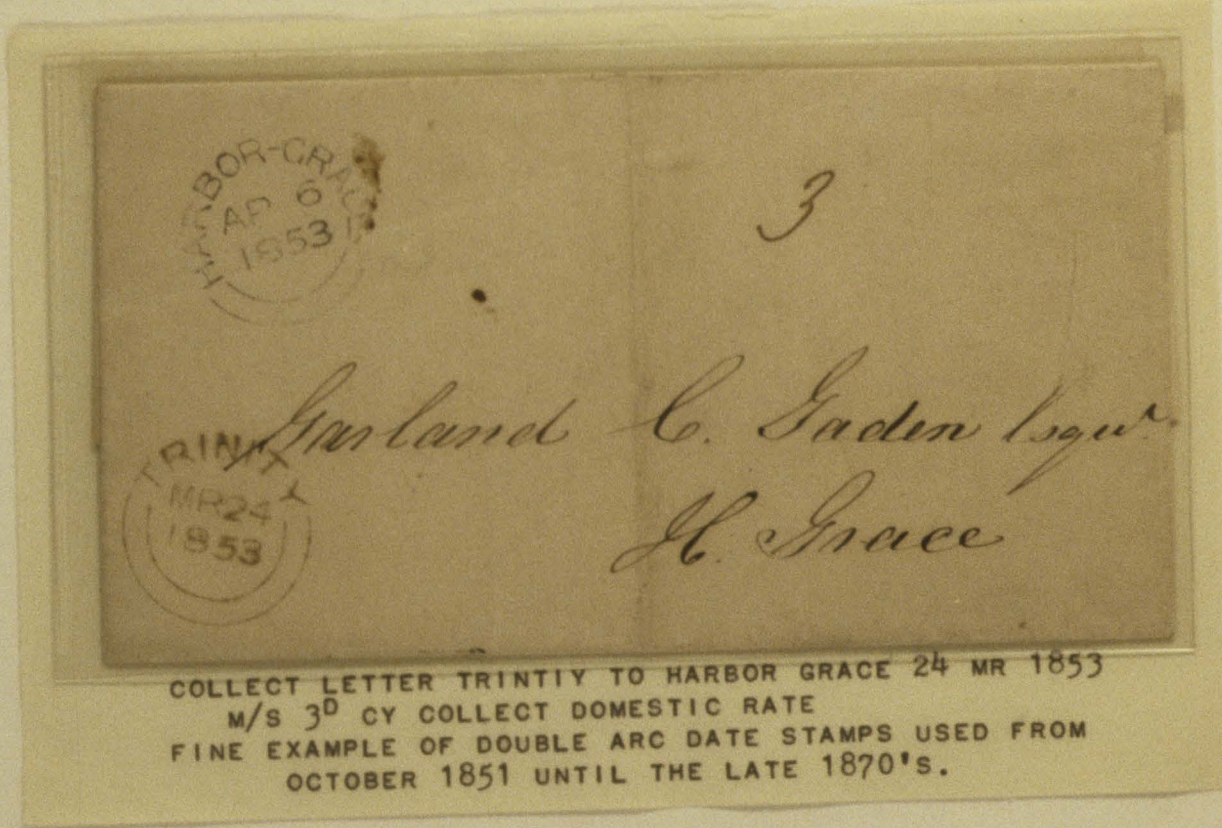 HARBOR-GRACE
AP 6
1853
3
Garland C. Gaden Esqr.
H. Grace
TRINITY
MR24
1853
COLLECT LETTER TRINTIY TO HARBOR GRACE 24 MR 1853
M/S 3D CY COLLECT DOMESTIC RATE
FINE EXAMPLE OF DOUBLE ARC DATE STAMPS USED FROM
OCTOBER 1851 UNTIL THE LATE 1870'S.